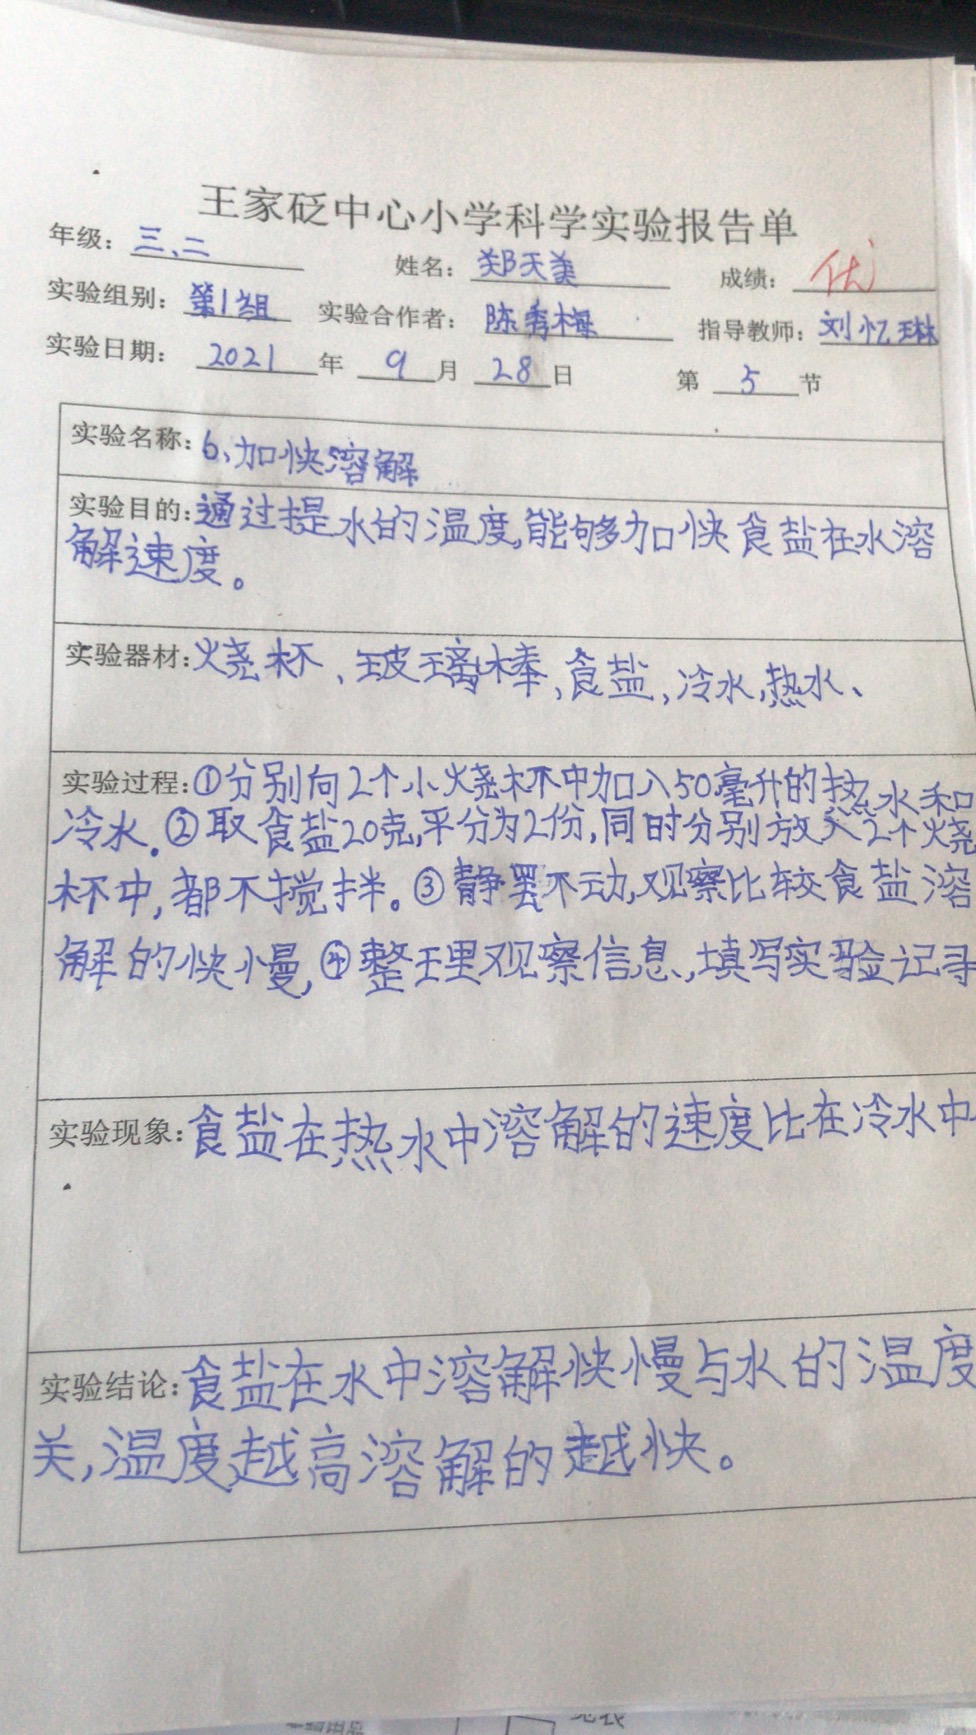 王家砭中心小学科学实验报告单
年级：三、二 姓名：郑天美 成绩：优
实验组别：第1组 实验合作者：陈秀梅 指导教师：刘忆琳
实验日期：2021年9月28日 第5节
实验名称：6、加快溶解
实验目的：通过提水的温度,能够加快食盐在水溶
解速度。
实验器材：烧杯、玻璃棒、食盐,冷水,热水、
实验过程：①分别向2个小烧杯中加入50毫升的热水和
冷水.②取食盐20克,平分为2份,同时分别放入2个烧
杯中,都不搅拌。③静置不动,观察比较食盐溶
解的快慢,④整理观察信息,填写实验记录
实验现象：食盐在热水中溶解的速度比在冷水中
实验结论：食盐在水中溶解快慢与水的温度
关,温度越高溶解的越快。